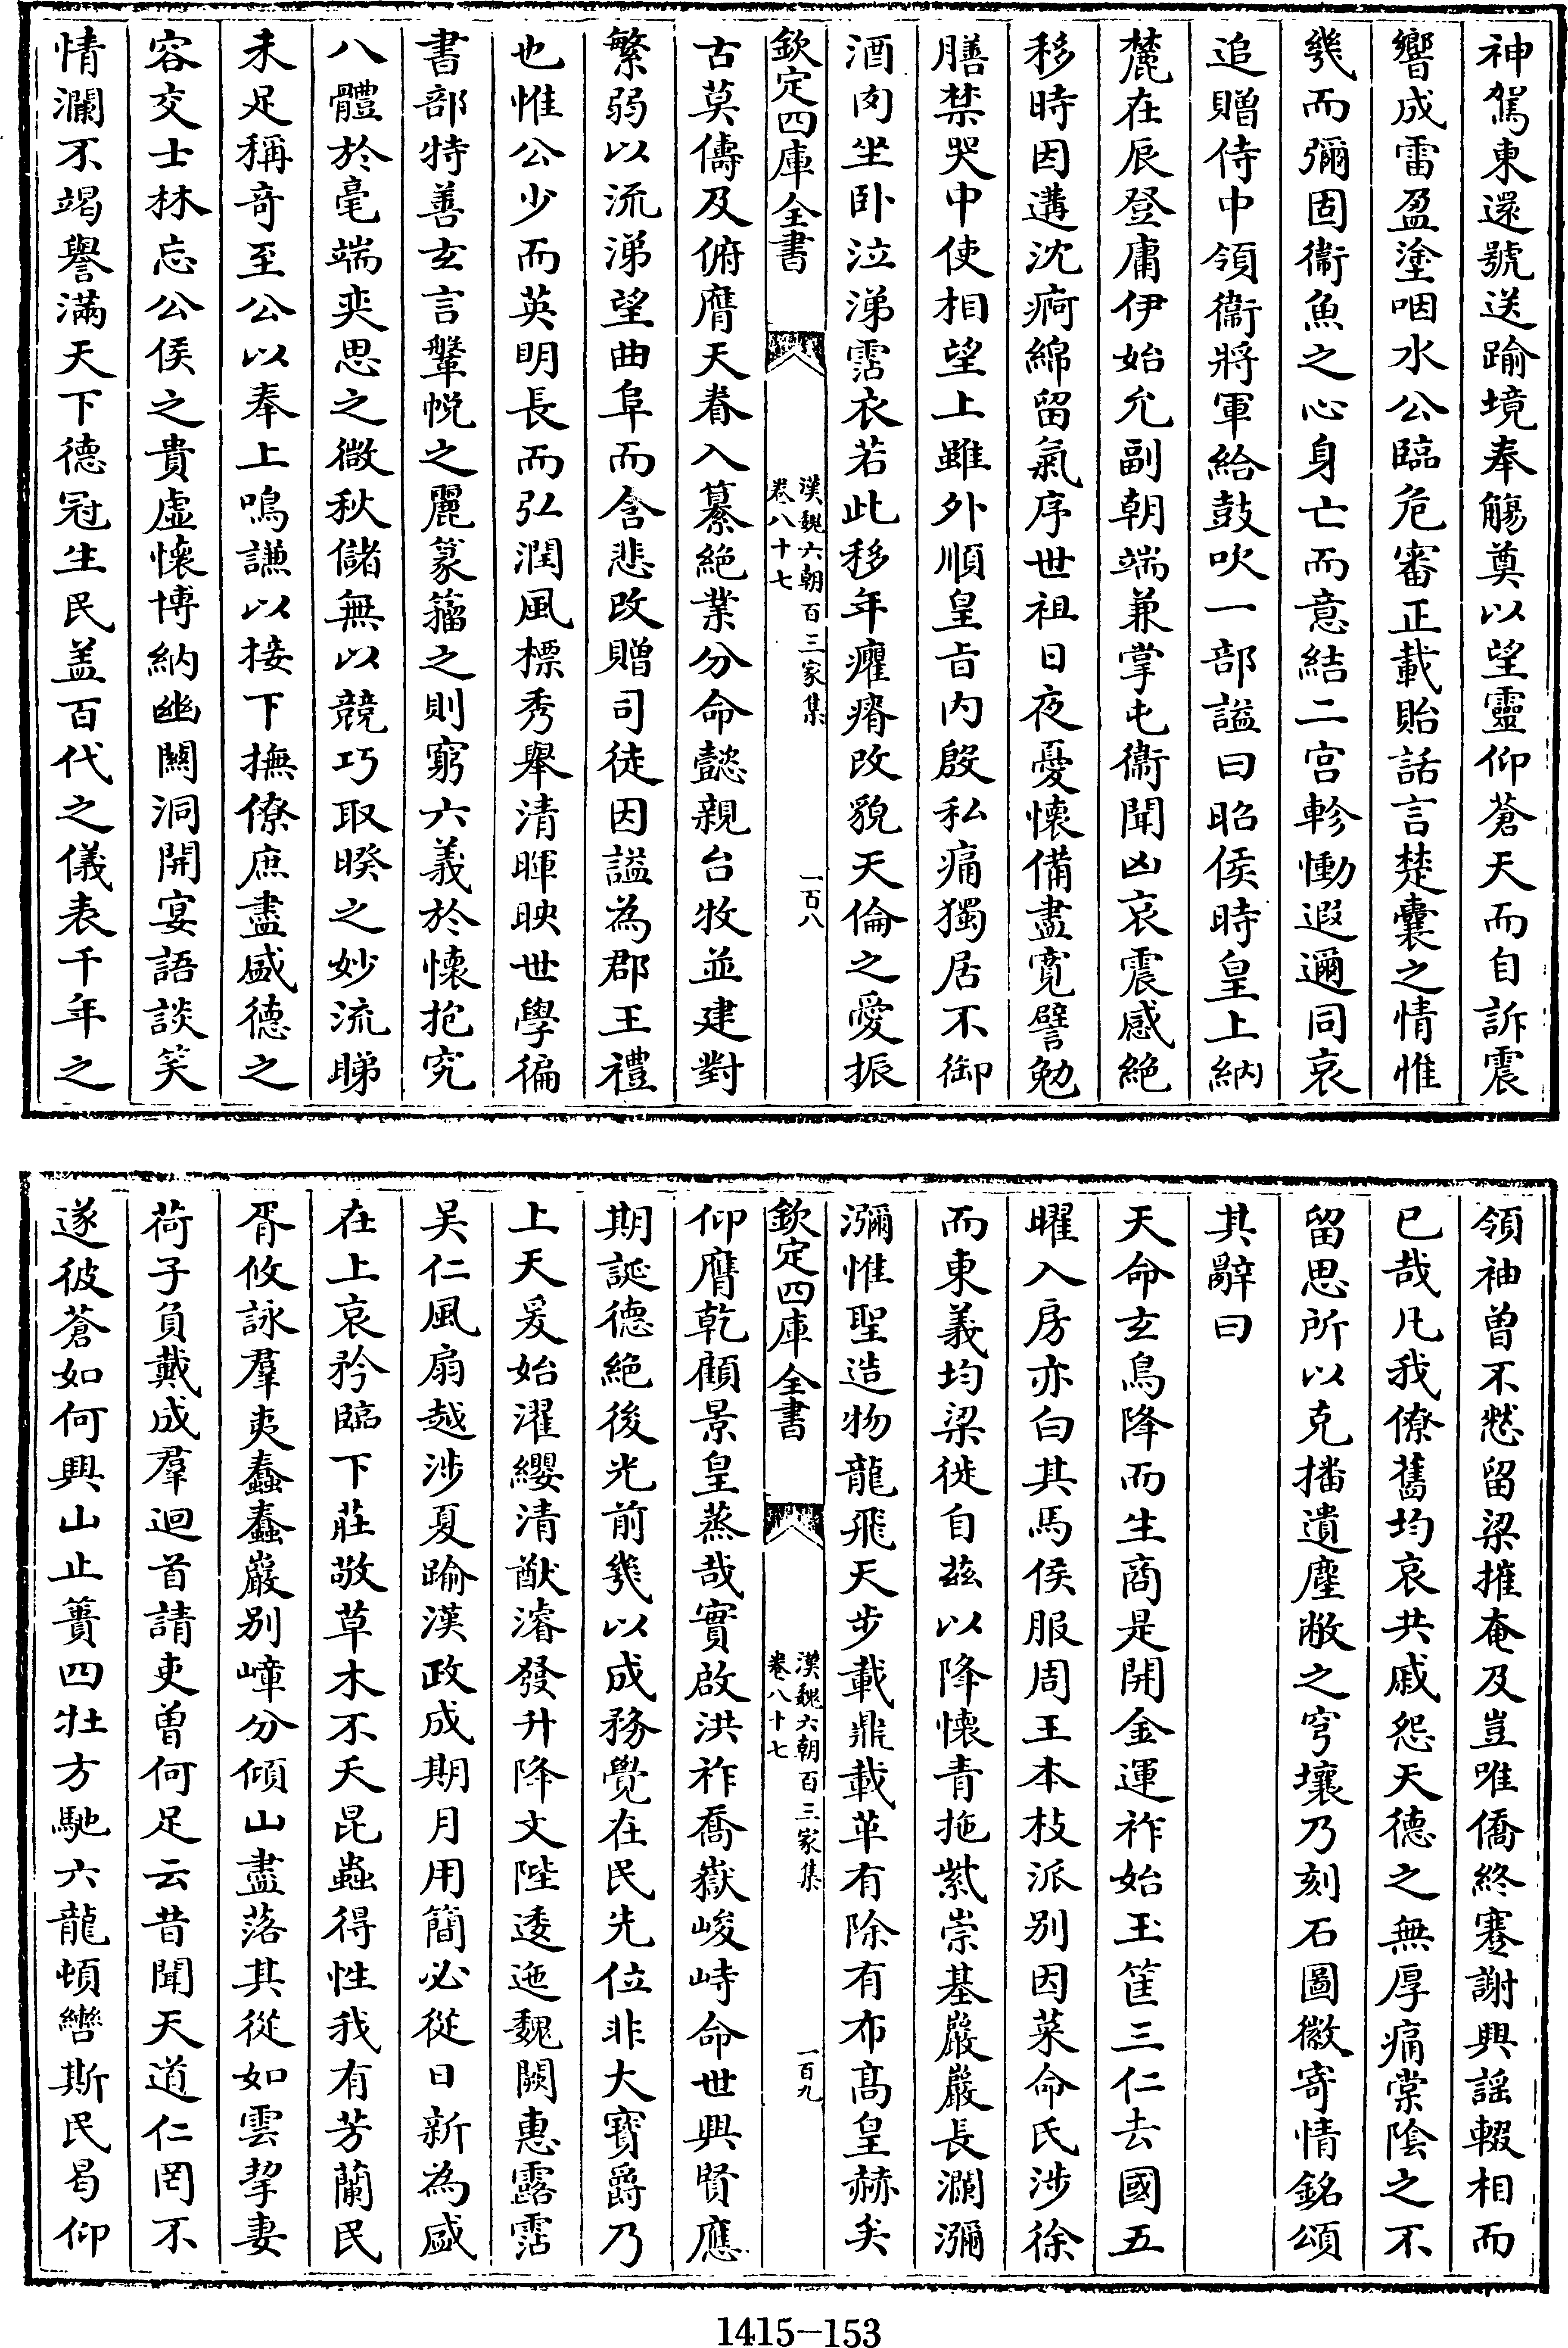 神駕東還號送踰境奉觴奠以望靈仰蒼天而自訴震
響成雷盈塗咽水公臨危審正載貽話言楚囊之情惟
幾而彌固衞魚之心身亡而意結二宫軫慟遐邇同哀
追贈侍中領衞將軍給鼓吹一部謚曰昭侯時皇上納
麓在辰登庸伊始允副朝端兼掌屯衞聞凶哀震感絶
移時因遘沈痾綿留氣序世祖日夜憂懷備盡寛譬勉
膳禁哭中使相望上雖外順皇旨内殷私痛獨居不御
酒肉坐卧泣涕霑衣若此移年癯瘠改貌天倫之愛振
欽定四庫全書
漢魏六朝百三家集
卷八十七
一百八
古莫儔及俯膺天眷入纂絶業分命懿親台牧並建對
繁弱以流涕望曲阜而含悲改贈司徒因謚為郡王禮
也惟公少而英明長而弘潤風標秀舉清暉映世學徧
書部特善玄言鞶帨之麗篆籀之則窮六義於懷抱究
八體於毫端奕思之微秋儲無以競巧取睽之妙流睇
未足稱奇至公以奉上鳴謙以接下撫僚庶盡盛德之
容交士林忘公侯之貴虛懷博納幽闗洞開宴語談笑
情瀾不竭譽滿天下德冠生民盖百代之儀表千年之
領袖曽不憖留梁摧奄及豈唯僑終蹇謝興謡輟相而
已哉凡我僚舊均哀共戚怨天德之無厚痛棠隂之不
留思所以克播遺塵敝之穹壤乃刻石圖徽寄情銘頌
其辭曰
天命玄鳥降而生商是開金運祚始玉筐三仁去國五
曜入房亦白其馬侯服周王本枝派别因菜命氏涉徐
而東義均梁徙自茲以降懷青拖紫崇基巖巖長瀾瀰
瀰惟聖造物龍飛天步載鼎載革有除有布髙皇赫矣
欽定四庫全書
漢魏六朝百三家集
卷八十七
一百九
仰膺乾顧景皇蒸哉實啟洪祚喬嶽峻峙命世興賢應
期誕德絶後光前幾以成務覺在民先位非大寳爵乃
上天爰始濯纓清猷濬發升降文陛逶迤魏闕惠露霑
吴仁風扇越涉夏踰漢政成期月用簡必從日新為盛
在上哀矜臨下莊敬草木不夭昆蟲得性我有芳蘭民
胥攸詠羣夷蠢蠢巖别嶂分傾山盡落其從如雲挈妻
荷子負戴成羣迴首請吏曽何足云昔聞天道仁罔不
遂彼蒼如何興山止簣四牡方馳六龍頓轡斯民曷仰
1415-153